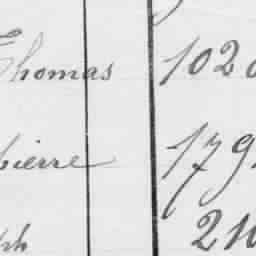 Thomas 1020
pierre 179
ph 210